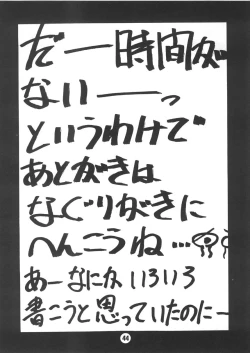 だー時間が
ないーーっ
というわけで
あとがきは
なぐりがきに
へんこうね…
あーなにか いろいろ
書こうと思っていたのにー
44